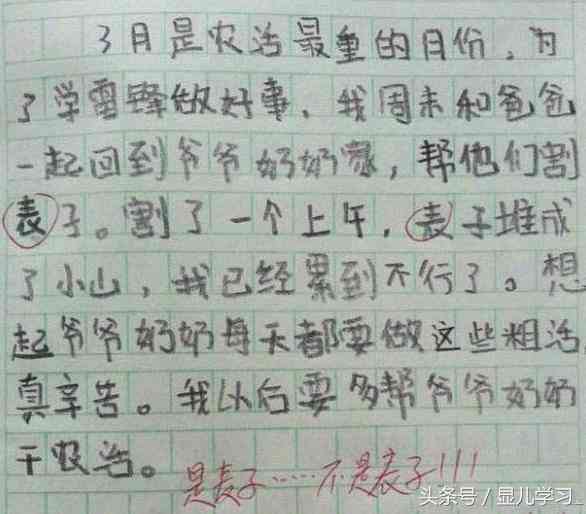 3月是农活最重的月份,为
了学雷锋做好事,我周末和爸爸
一起回到爷爷奶奶家,帮他们割
表子。割了一个上午,表子堆成
了小山,我已经累到不行了。想
起爷爷奶奶每天都要做这些粗活
真辛苦。我以后要多帮爷爷奶奶
干农活。
是麦子……不是表子!!!
头条号 / 显儿学习